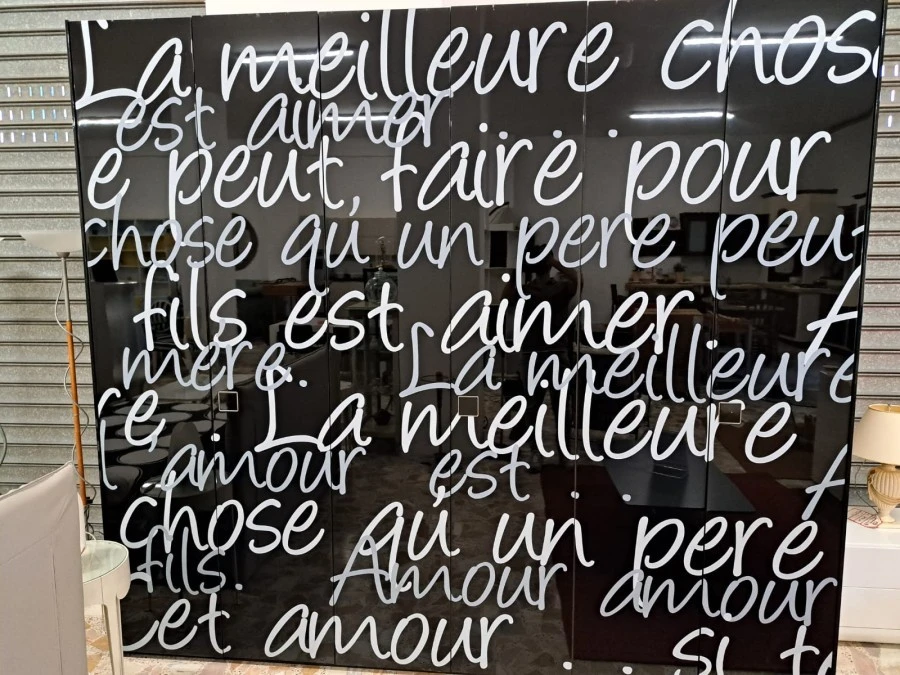 La meilleure chos
est aimer
e peut, faire pour
chose qu'un pere peut
fils est aimer A
mere. La meilleure
re La meilleure
l'amour est A
chose qu'un pere
fils. Amour amour
Cet amour Si to